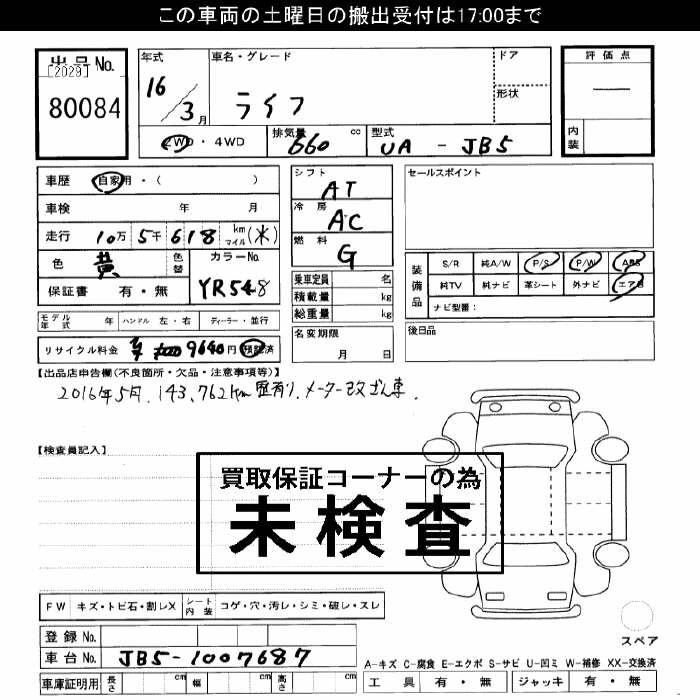 この車両の土曜日の搬出受付は17:00まで
出品No.
[2029]
80084
年式
16/3月
車名・グレード
ライフ
ドア
形状
評価点
―
内装
2WD・4WD
排気量 660 cc
型式 UA - JB5
車歴 自家用・( )
車検 年 月
走行 10万5千618 km マイル (米)
色 黄 色替 カラーNo. YR548
保証書 有・無
シフト AT
冷房 AC
燃料 G
セールスポイント
乗車定員 名
積載量 kg
総重量 kg
装備品
S/R 純A/W P/S P/W ABS
純TV 純ナビ 革シート 外ナビ エアB
ナビ型番:
モデル年式 年 ハンドル 左・右 ディーラー・並行
名変期限 月 日
後日品
リサイクル料金 9640円 預託済
【出品店申告欄(不良箇所・欠品・注意事項等)】
2016年5月、143,762km歴有り、メーター改ざん車.
【検査員記入】
買取保証コーナーの為
未検査
FW キズ・トビ石・割レX シート内装 コゲ・穴・汚レ・シミ・破レ・スレ
スペア
登録No.
車台No. JB5-1007687
A-キズ C-腐食 E-エクボ S-サビ U-凹ミ W-補修 XX-交換済
車庫証明用 長さ cm 幅 cm 高さ cm
工具 有・無 ジャッキ 有・無